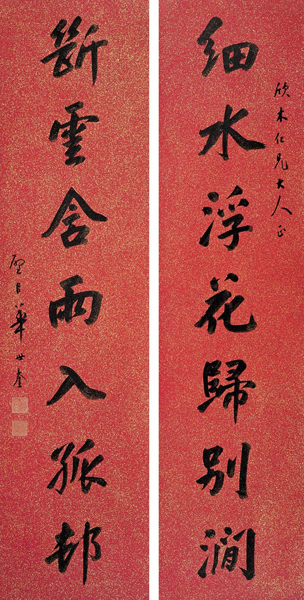 欣木仁兄大人正
細水浮花歸別澗
斷雲含雨入孤邨
璧臣華世奎